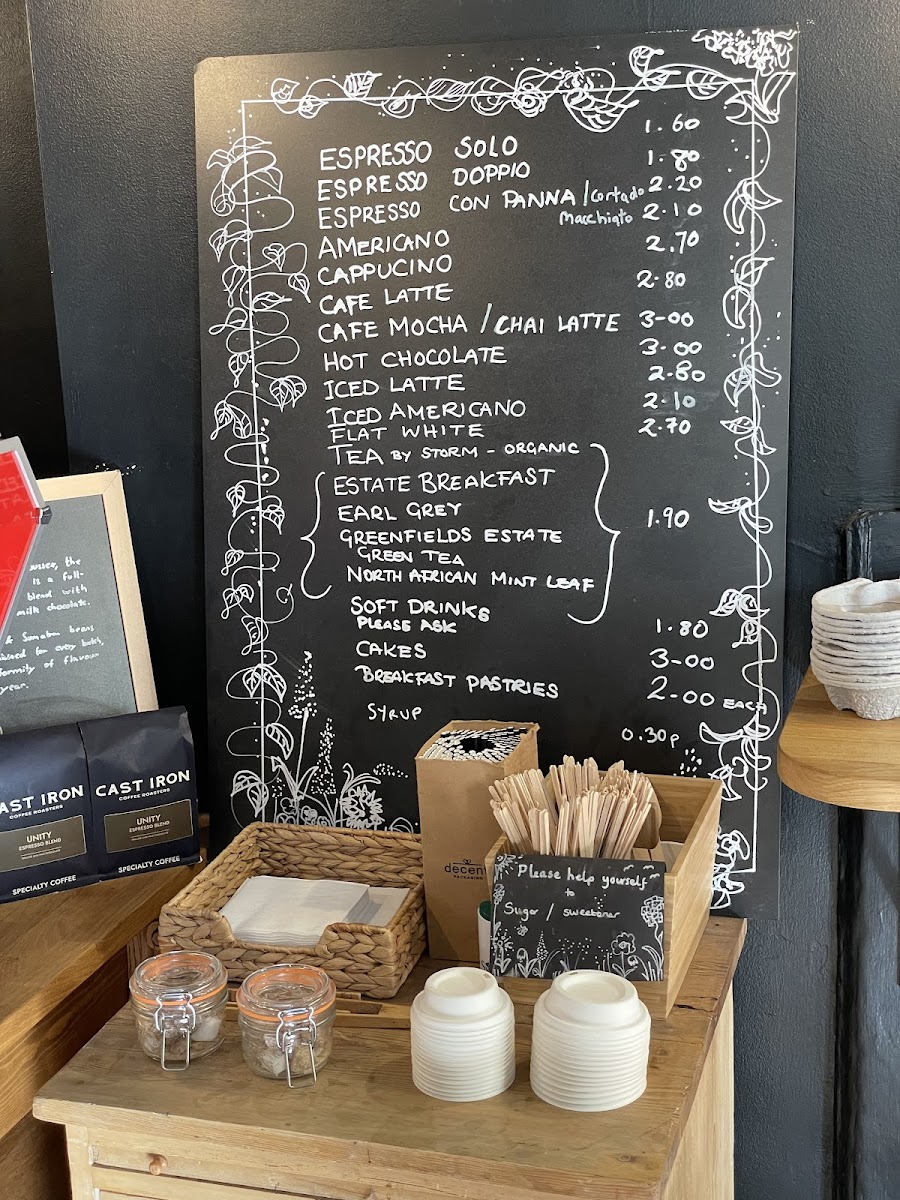 ESPRESSO SOLO 1.60
ESPRESSO DOPPIO 1.80
ESPRESSO CON PANNA / Cortado 2.20
Macchiato
AMERICANO 2.10
CAPPUCINO 2.70
CAFE LATTE 2.80
CAFE MOCHA / CHAI LATTE 3-00
HOT CHOCOLATE 3-00
ICED LATTE 2.80
ICED AMERICANO 2.10
FLAT WHITE 2.70
TEA BY STORM - ORGANIC
ESTATE BREAKFAST
EARL GREY 1.90
GREENFIELDS ESTATE
GREEN TEA
NORTH AFRICAN MINT LEAF
SOFT DRINKS 1.80
PLEASE ASK
CAKES 3-00
BREAKFAST PASTRIES 2-00 EACH
SYRUP 0.30p
the
is a full-
blend with
milk chocolate.
& Sumatra beans
for every batch,
of flavour
year.
AST IRON
COFFEE ROASTERS
UNITY
ESPRESSO BLEND
SPECIALTY COFFEE
CAST IRON
COFFEE ROASTERS
UNITY
ESPRESSO BLEND
SPECIALTY COFFEE
decen
PACKAGING
Please help yourself
to
Sugar / sweetener